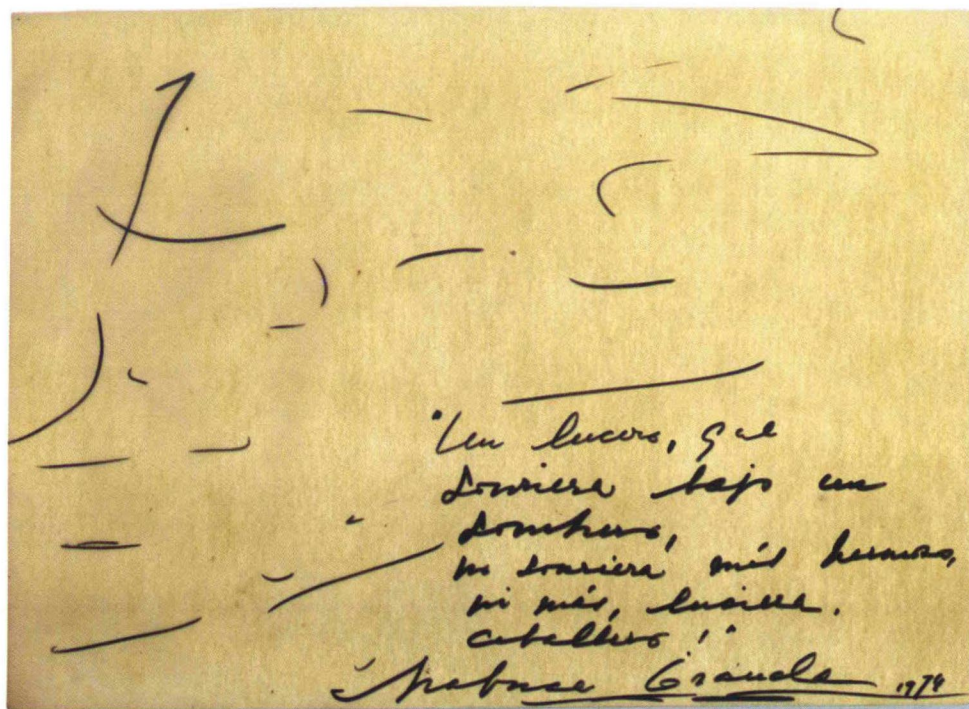 "Un lucero, que
sonriera bajo un
sombrero,
no sonriera más hermoso,
ni más, luciera.
caballero!"
Chabuca Granda 1974